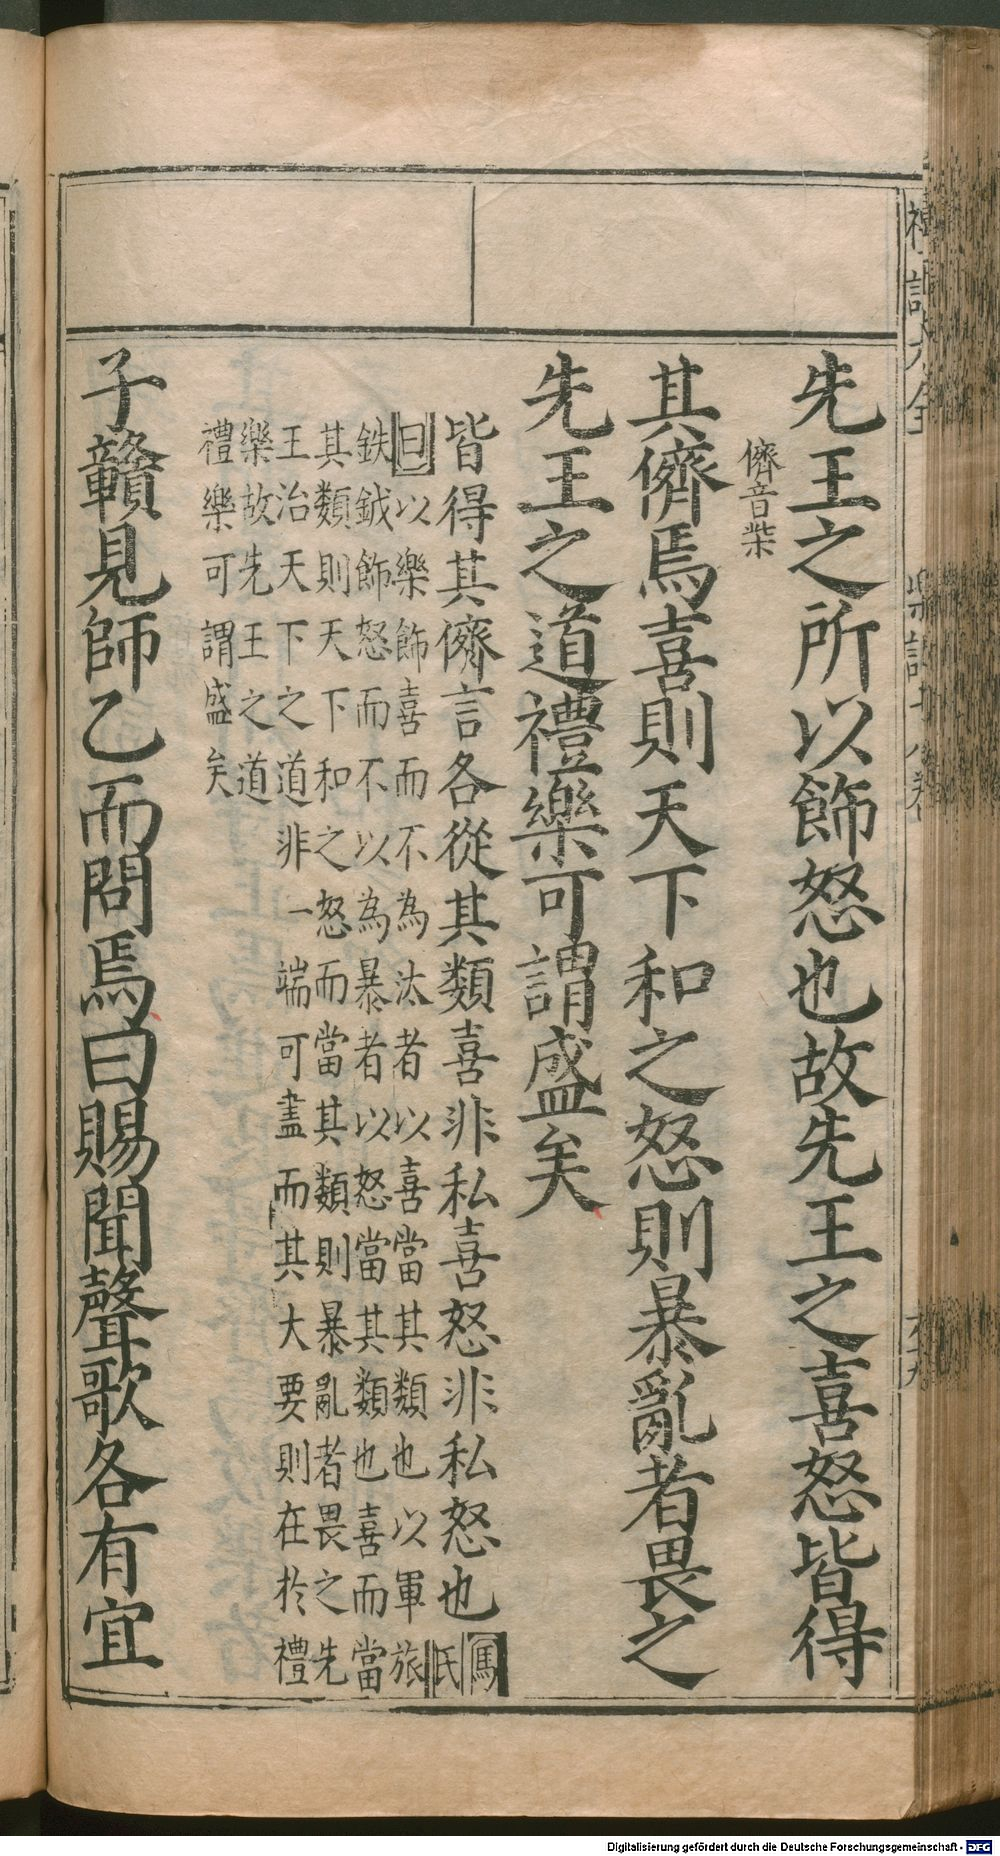 先王之所以飾怒也故先王之喜怒皆得
儕音柴
其儕焉喜則天下和之怒則暴亂者畏之
先王之道禮樂可謂盛矣
皆得其儕言各從其類喜非私喜怒非私怒也馬氏
曰以樂飾喜而不為汰者以喜當其類也以軍旅
鈇鉞飾怒而不以為暴者以怒當其類也喜而當
其類則天下和之怒而當其類則暴亂者畏之先
王治天下之道非一端可盡而其大要則在於禮
樂故先王之道
禮樂可謂盛矣
子贛見師乙而問焉曰賜聞聲歌各有宜
Digitalisierung gefördert durch die Deutsche Forschungsgemeinschaft - DFG